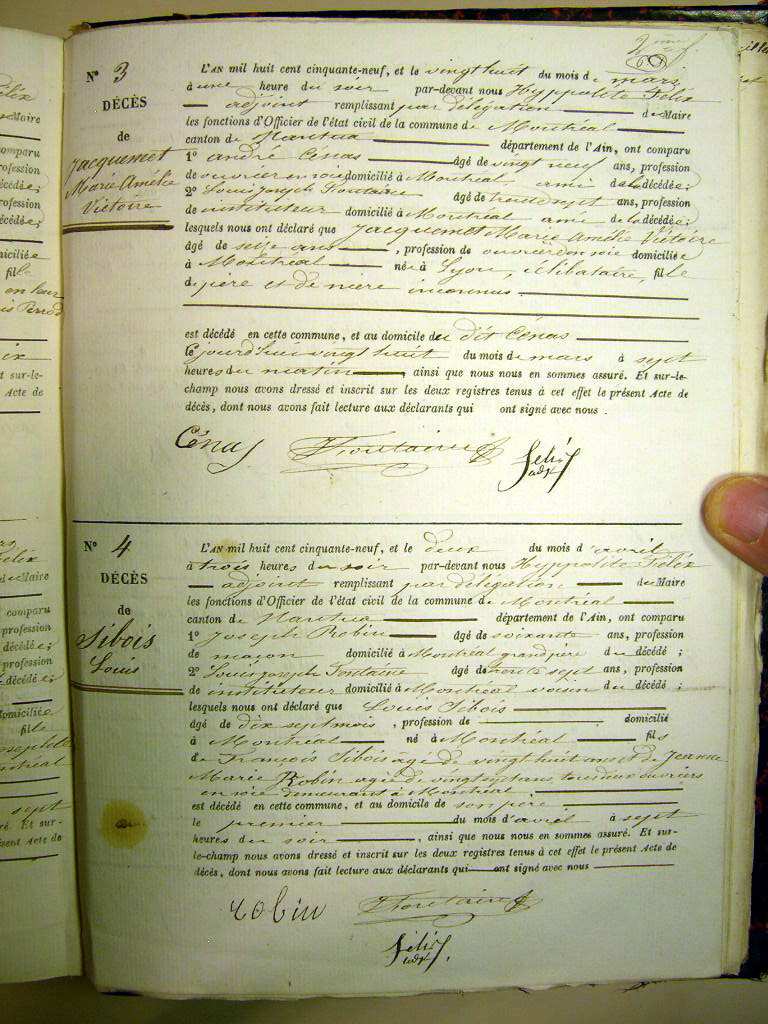 2me f
60
N° 3
DÉCÈS
de
Jacquemet
Marie Amélie
Victoire
L'AN mil huit cent cinquante-neuf, et le vingt huit du mois de mars
à une heure du soir par-devant nous Hyppolite Félix
adjoint remplissant par délégation du Maire
les fonctions d'Officier de l'état civil de la commune de Montréal
canton de Nantua département de l'Ain, ont comparu
1° andré Cénas âgé de vingt neuf ans, profession
de ouvrier en soie domicilié à Montréal ami de la décédée;
2° Louis Joseph Fontaine âgé de trente sept ans, profession
de instituteur domicilié à Montréal ami de la décédée;
lesquels nous ont déclaré que Jacquemet Marie Amélie Victoire
âgé de seize ans, profession de ouvrière en soie domiciliée
à Montréal née à Lyon, célibataire, fille
de père et de mère inconnus
est décédé en cette commune, et au domicile du dit Cénas
le jourd'hui vingt huit du mois de mars à sept
heures du matin, ainsi que nous nous en sommes assuré. Et sur-le-
champ nous avons dressé et inscrit sur les deux registres tenus à cet effet le présent Acte de
décès, dont nous avons fait lecture aux déclarants qui ont signé avec nous.
Cénas Fontaine Félix
adjt
N° 4
DÉCÈS
de
Sibois
Louis
L'AN mil huit cent cinquante-neuf, et le deux du mois d'avril
à trois heures du soir par-devant nous Hyppolite Félix
adjoint remplissant par délégation du Maire
les fonctions d'Officier de l'état civil de la commune de Montréal
canton de Nantua département de l'Ain, ont comparu
1° Joseph Robin âgé de soixante ans, profession
de maçon domicilié à Montréal grand père du décédé;
2° Louis Joseph Fontaine âgé de trente sept ans, profession
de instituteur domicilié à Montréal voisin du décédé;
lesquels nous ont déclaré que Louis Sibois
âgé de dix sept mois, profession de domicilié
à Montréal né à Montréal fils
de François Sibois agé de vingt huit ans et de Jeanne
Marie Robin agée de vingt sept ans tous deux ouvriers
en soie demeurant à Montréal
est décédé en cette commune, et au domicile de son père
le premier du mois d'avril à sept
heures du soir, ainsi que nous nous en sommes assuré. Et sur-
le-champ nous avons dressé et inscrit sur les deux registres tenus à cet effet le présent Acte de
décès, dont nous avons fait lecture aux déclarants qui ont signé avec nous
robin Fontaine
Félix
adjt.